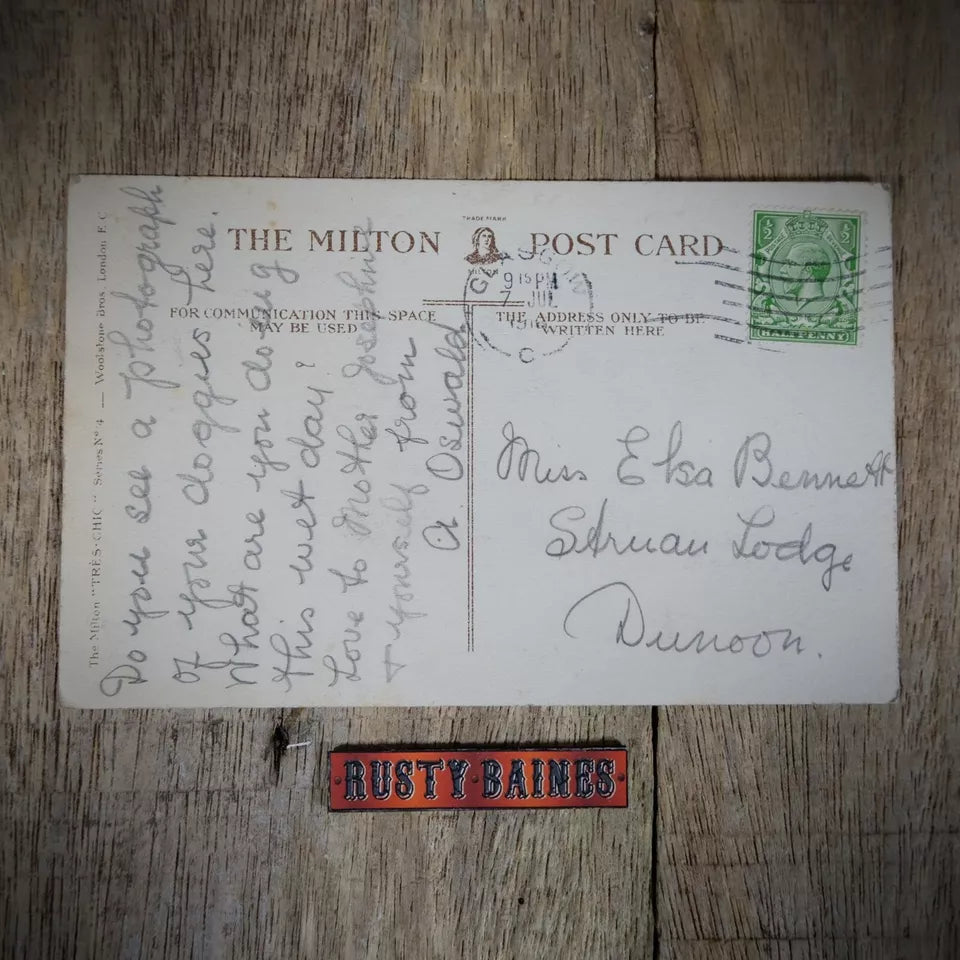 The Milton "TRÈS-CHIC" Series No 4 — Woolstone Bros. London E.C
TRADE MARK
THE MILTON POST CARD
MILTON
FOR COMMUNICATION THIS SPACE
MAY BE USED
THE ADDRESS ONLY TO BE
WRITTEN HERE
9 15 PM
7 JUL
C
½ ½
HALFPENNY
Do you see a photograph
of your doggies here.
What are you doing
this wet day?
Love to Mother Josephine
+ yourself from
A Oswald
Miss Elsa Bennett
Struan Lodge
Dunoon.
RUSTY BAINES